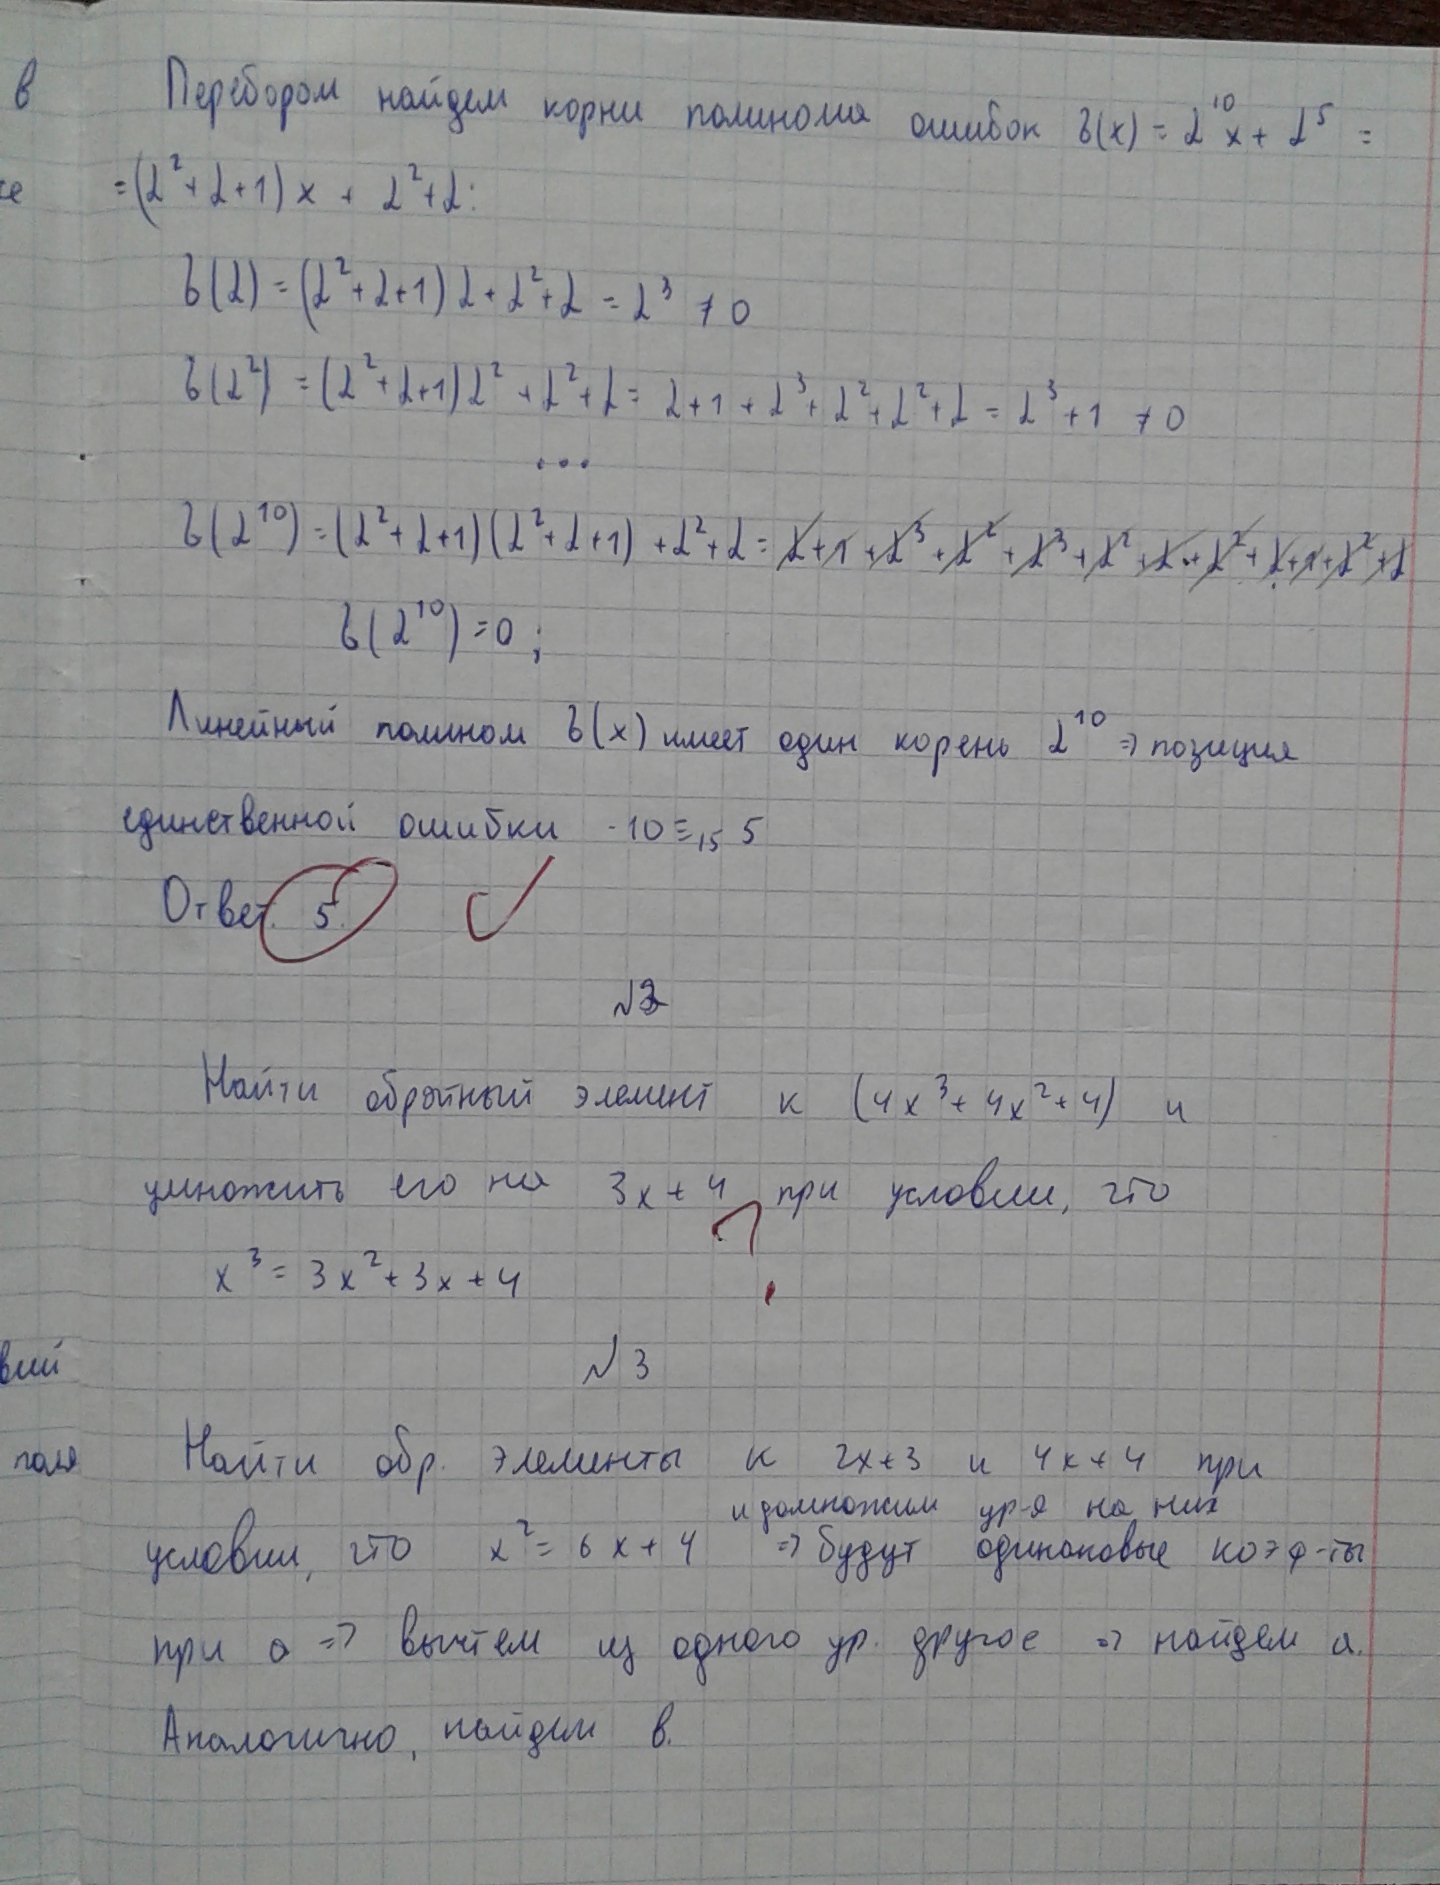 в
Перебором найдем корни полинома ошибок б(x) = α^10 x + α^5 =
= (α^2 + α + 1) x + α^2 + α:
б(α) = (α^2 + α + 1) α + α^2 + α = α^3 ≠ 0
б(α^2) = (α^2 + α + 1) α^2 + α^2 + α = α + 1 + α^3 + α^2 + α^2 + α = α^3 + 1 ≠ 0
...
б(α^10) = (α^2 + α + 1)(α^2 + α + 1) + α^2 + α = α + 1 + α^3 + α^2 + α^3 + α^2 + α + α^2 + α + 1 + α^2 + α
б(α^10) = 0;
Линейный полином б(x) имеет один корень α^10 => позиция
единственной ошибки -10 ≡_15 5
Ответ. 5.
№2
Найти обратный элемент к (4x^3 + 4x^2 + 4) и
умножить его на 3x + 4 при условии, что
x^3 = 3x^2 + 3x + 4
вий
№3
поля
Найти обр. элементы к 2x+3 и 4x+4 при
и домножим ур-я на них
условии, что x^2 = 6x + 4 => будут одинаковые коэф-ты
при a => вычтем из одного ур. другое => найдем a.
Аналогично, найдем в.